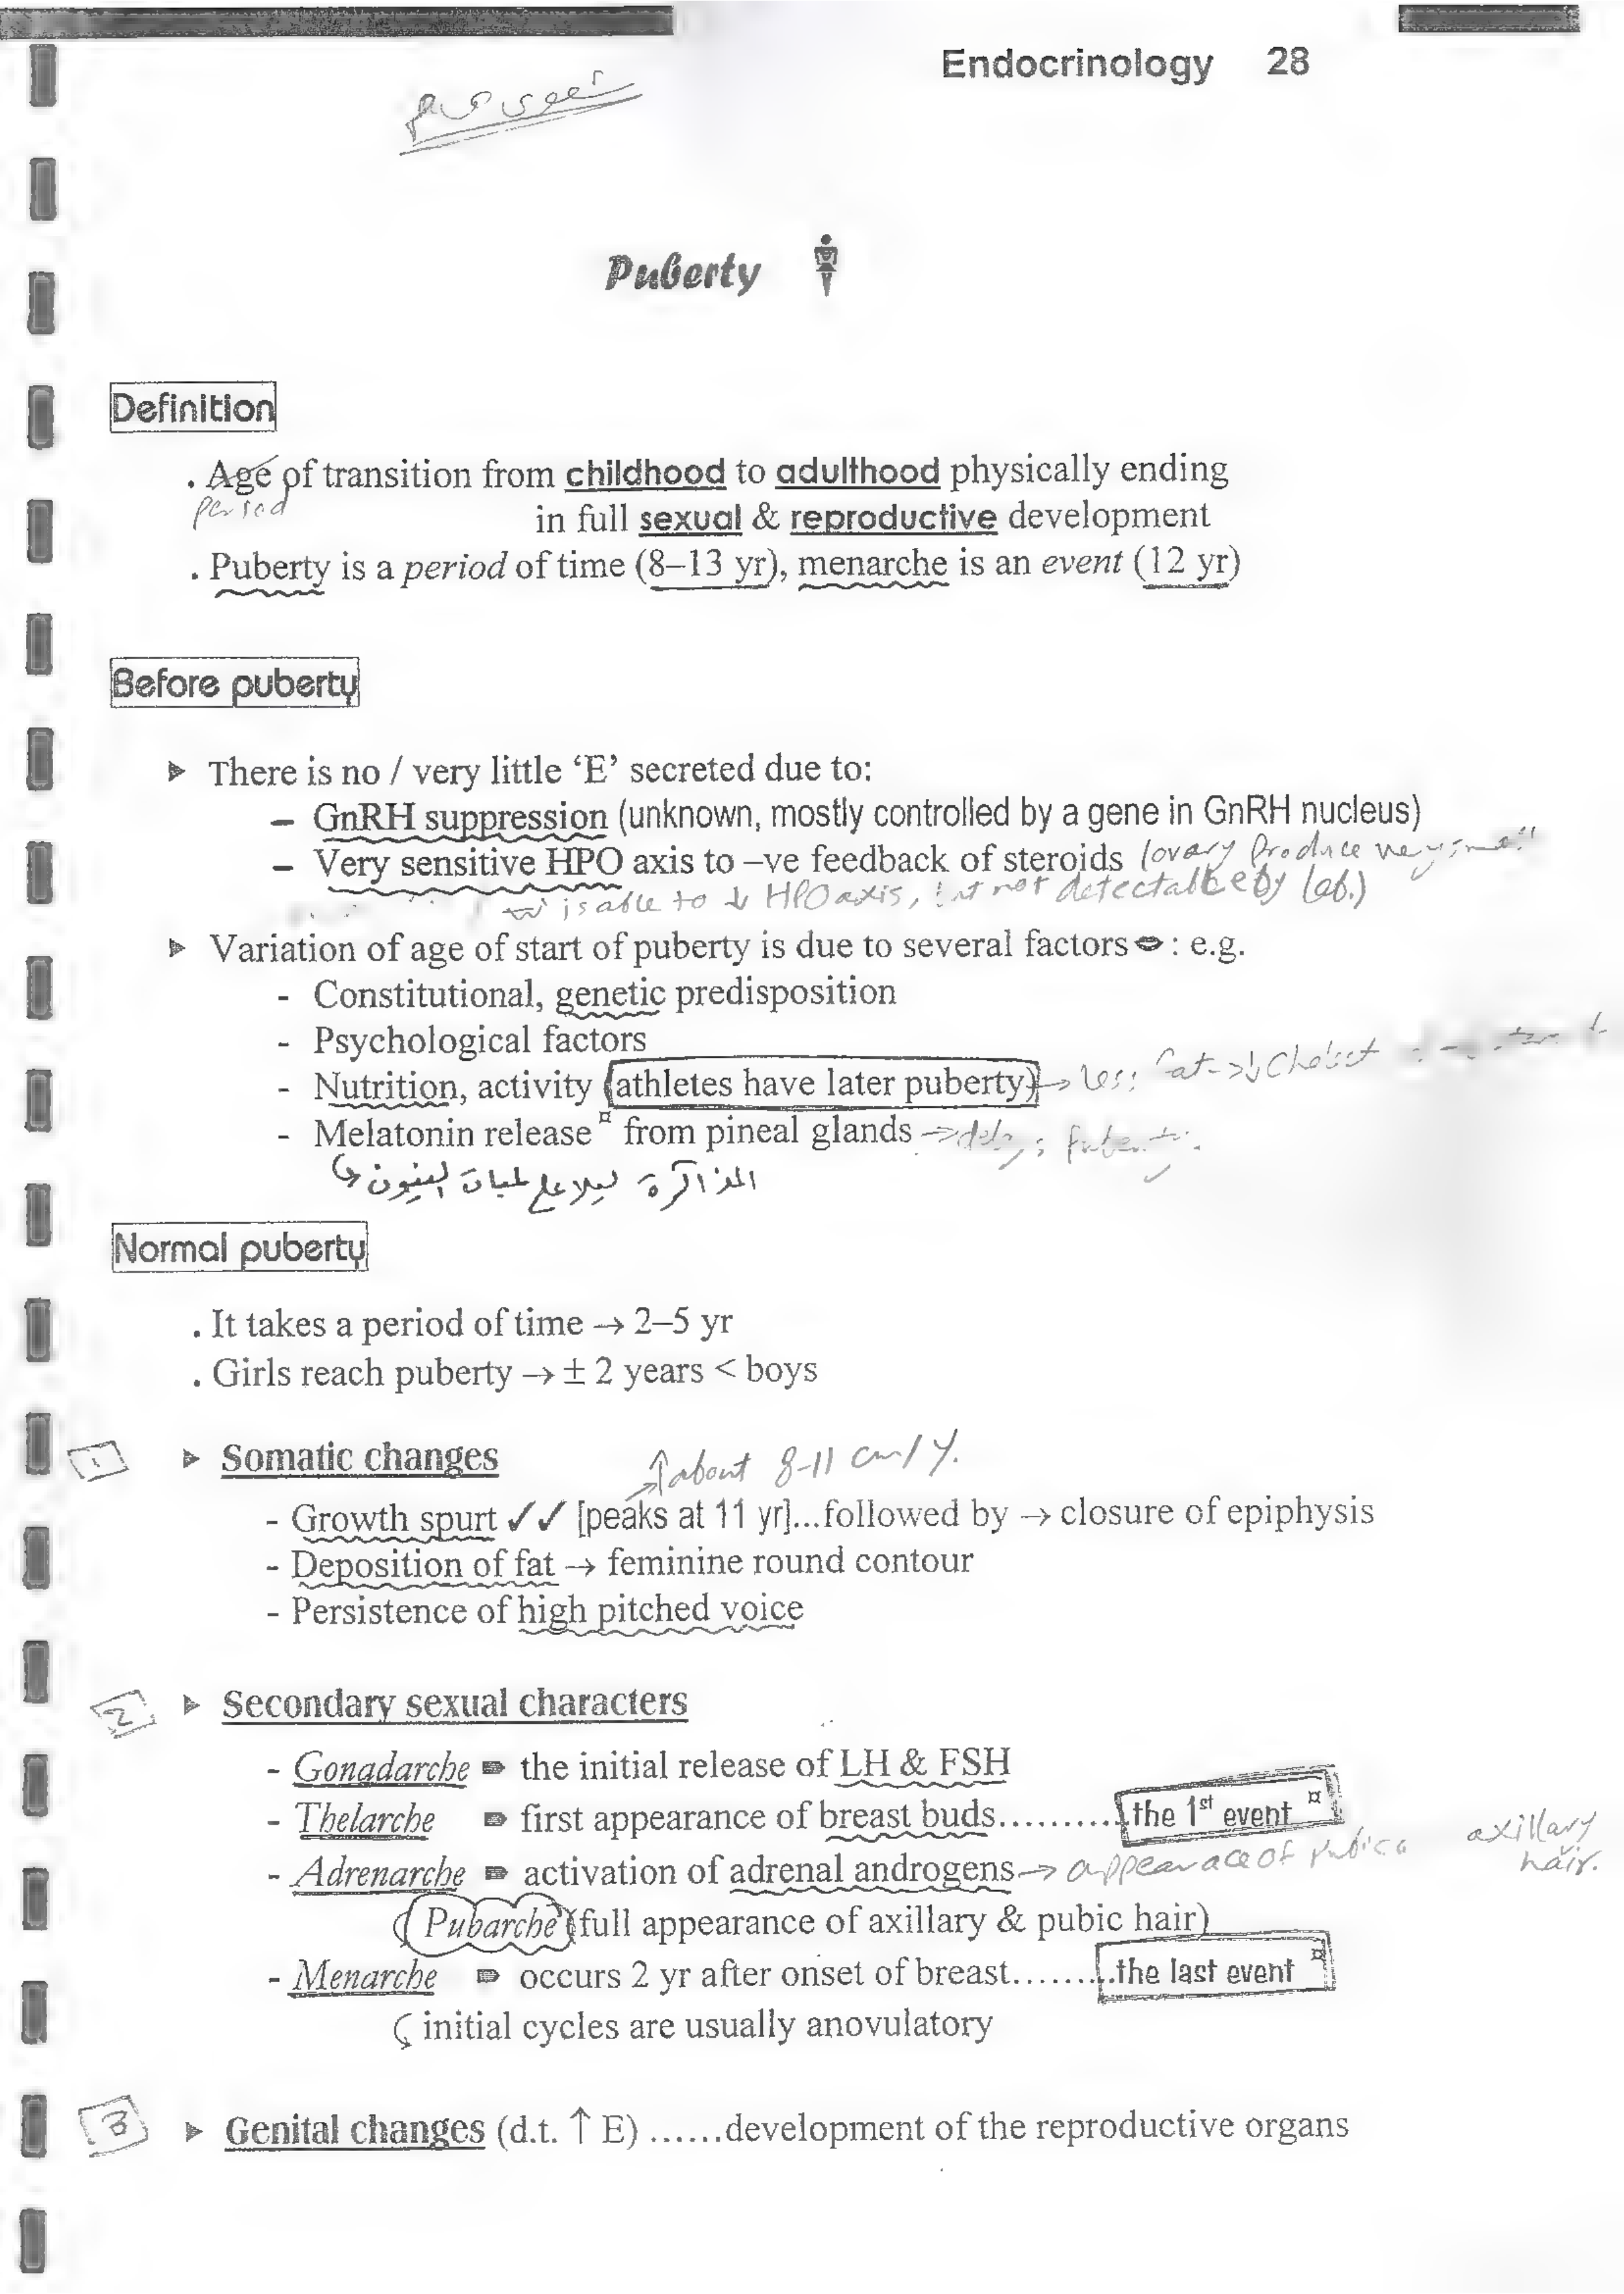 Endocrinology 28
Puberty
Definition
. Age of transition from childhood to adulthood physically ending
period
in full sexual & reproductive development
. Puberty is a period of time (8–13 yr), menarche is an event (12 yr)
Before puberty
▸ There is no / very little ‘E’ secreted due to:
– GnRH suppression (unknown, mostly controlled by a gene in GnRH nucleus)
– Very sensitive HPO axis to –ve feedback of steroids (ovary produce very small
is able to ↓ HPO axis, but not detectable by lab.)
▸ Variation of age of start of puberty is due to several factors : e.g.
- Constitutional, genetic predisposition
- Psychological factors
- Nutrition, activity (athletes have later puberty) → less fat → ↓ cholest
- Melatonin release ¤ from pineal glands → delay puberty.
المذاكرة ليلا على لمبات النيون
Normal puberty
. It takes a period of time → 2–5 yr
. Girls reach puberty → ± 2 years < boys
1 ▸ Somatic changes
↑ about 8-11 cm/y.
- Growth spurt ✓✓ [peaks at 11 yr]...followed by → closure of epiphysis
- Deposition of fat → feminine round contour
- Persistence of high pitched voice
2 ▸ Secondary sexual characters
- Gonadarche the initial release of LH & FSH
- Thelarche first appearance of breast buds..........the 1st event ¤
- Adrenarche activation of adrenal androgens → appearace of pubic axillary
hair.
Pubarche (full appearance of axillary & pubic hair)
- Menarche occurs 2 yr after onset of breast.........the last event ¤
initial cycles are usually anovulatory
3 ▸ Genital changes (d.t. ↑ E) ......development of the reproductive organs